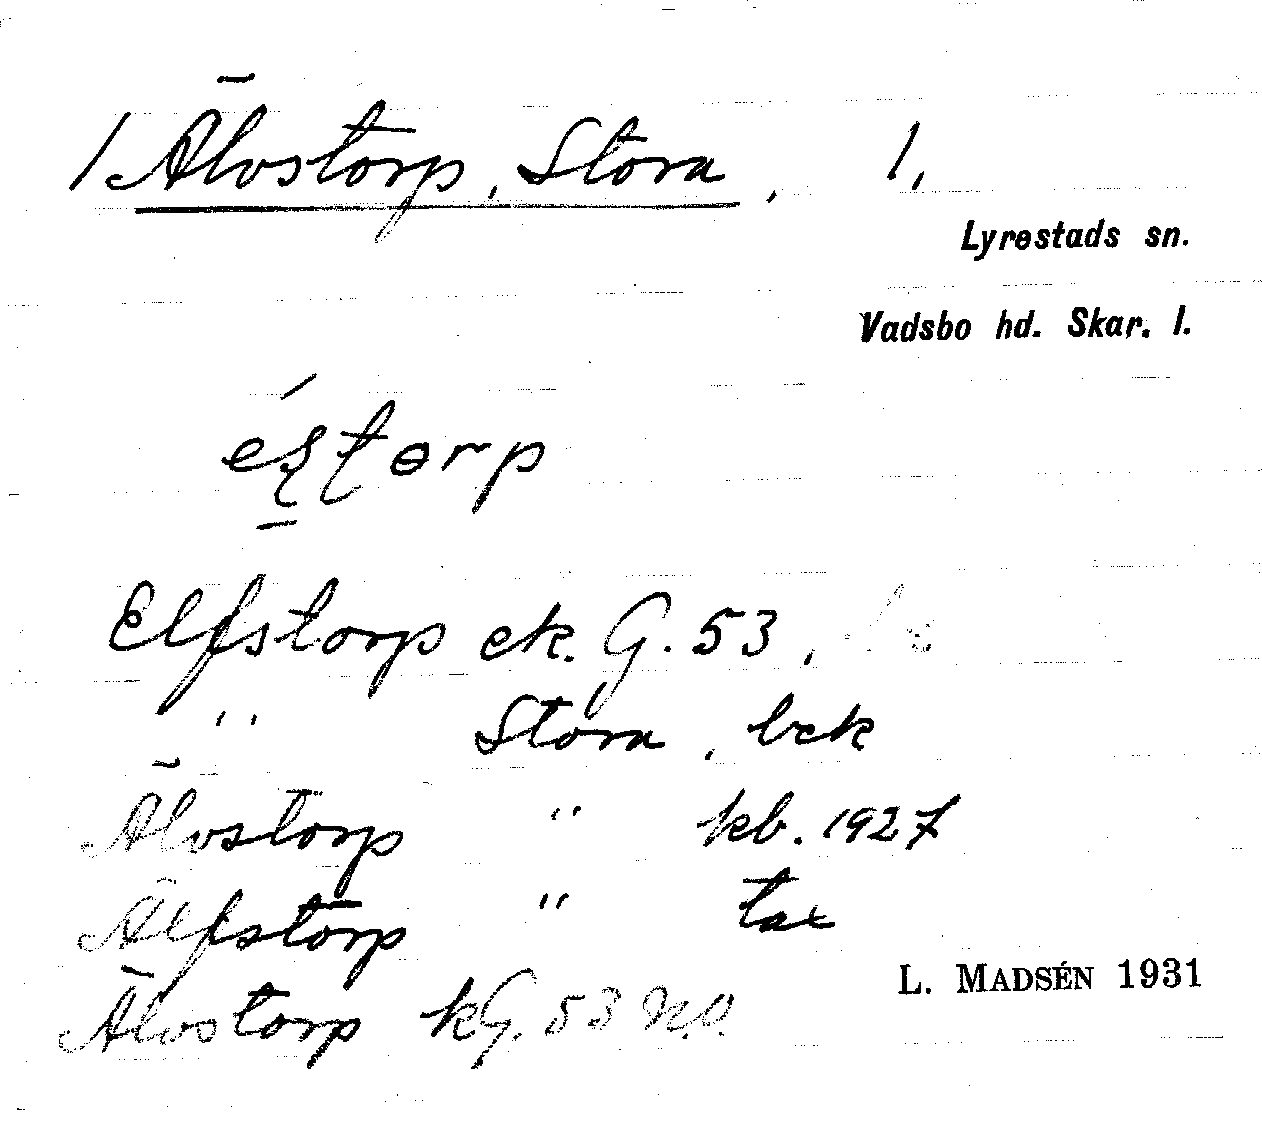 1 Älvstorp, Stora, 1,
Lyrestads sn.
Vadsbo hd. Skar. l.
Elfstorp ek. G. 53,
" Stora, bck
Älvstorp " kb. 1927
Älfstorp " tax
Älvstorp kG. 53 n.o.
L. MADSÉN 1931